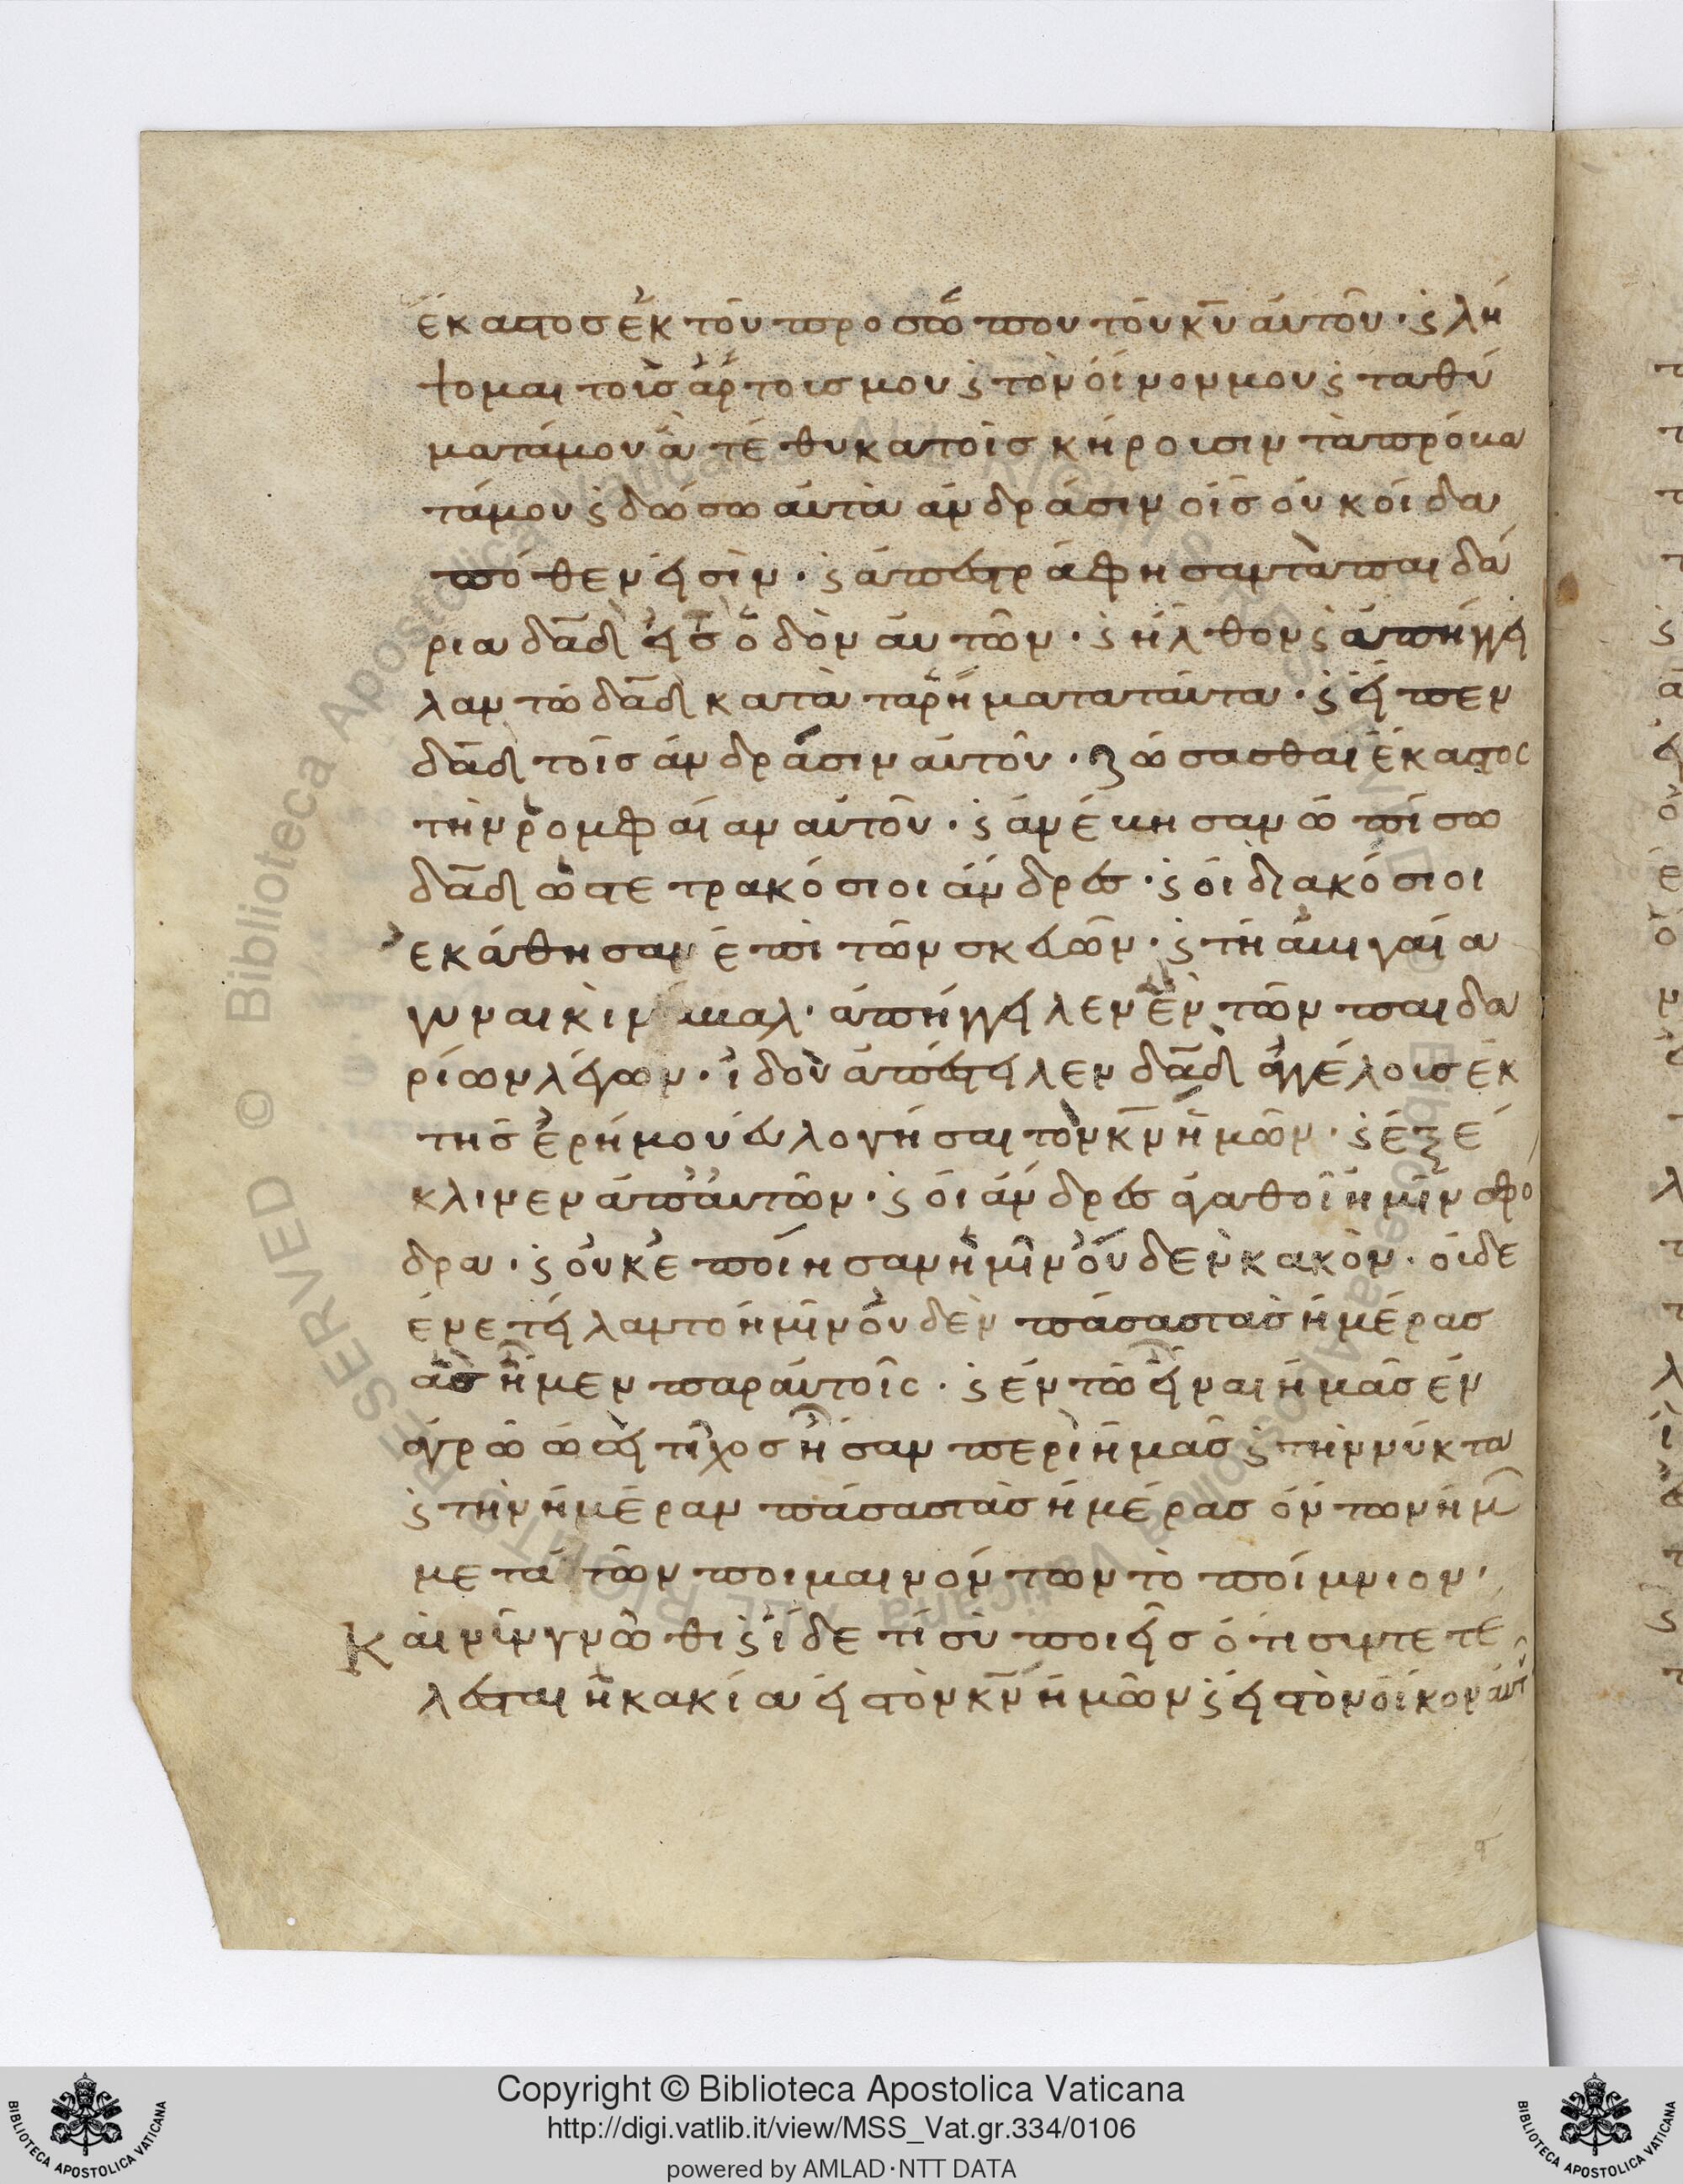 ἕκαστος ἐκ τοῦ προσώπου τοῦ κ̅υ̅ αὐτοῦ· ϗ λή
ψομαι τοὺσ ἄρτουσ μου ϗ τὸν οἶνον μου ϗ τα θύ
ματά μου ἃ τέθυκα τοῖσ κήρουσιν τὰ πρόβα
τά μου ϗ δώσω αὐτὰ ἀνδράσιν οἷσ οὐκ οἶδα
πόθεν εἰσὶν· ϗ ἀπεστράφησαν τὰ παιδά
ρια δα̅δ̅ εἰσ ὁδὸν αὐτῶν· ϗ ἦλθον ϗ ἀπήγγει
λαν τῶ δα̅δ̅ κατὰ τα ῥήματα ταῦτα· ϗ εἶπεν
δα̅δ̅ τοῖσ ἀνδράσιν αὐτοῦ· ζώσασθαι ἕκαστος
τὴν ῥομφαίαν αὐτοῦ· ϗ ἀνέβησαν ὀπίσω
δα̅δ̅ ὡς τετρακόσιοι ἄνδρεσ· ϗ οἱ διακόσιοι
ἐκάθησαν ἐπὶ τῶν σκευῶν· ϗ τῆ ἀβιγαία
γυναικὶ ναβαλ· ἀπήγγειλεν ἓν τῶν παιδα
ρίων λέγων· ἰδοὺ ἀπέστειλεν δα̅δ̅ ἀγγέλουσ ἐκ
τησ ἐρήμου εὐλογήσαι τὸν κ̅ν̅ ἡμῶν· ϗ ἐξέ
κλινεν ἀπ' αὐτῶν· ϗ οἱ ἄνδρεσ ἀγαθοὶ ἡμῖν σφο
δρα· ϗ οὐκ ἐποίησαν ἡμῖν οὐδεν κακὸν· οὐδε
ἐνετείλαντο ἡμῖν οὐδὲν πάσασ τὰσ ἡμέρασ
ἃσ ἦμεν παρ αὐτοῖς· ϗ ἐν τῶ εἶναι ἡμᾶσ ἐν
ἀγρῶ ὡσεὶ τῖχοσ ἦσαν περὶ ἡμᾶσ ϗ τὴν νύκτα
ϗ τὴν ἡμέραν πάσασ τὰσ ἡμέρασ ὄντων ἡμ
μετὰ τῶν ποιμαινόντων τὸ ποίμνιον·
Καὶ νῦν γνῶθι ϗ ἴδε τί σὺ ποιεῖσ ὅτι συντετέ
λεσται ἡ κακία εἰσ τὸν κ̅ν̅ ἡμῶν ϗ εἰσ τὸν οἶκον αὐτ
Copyright © Biblioteca Apostolica Vaticana
http://digi.vatlib.it/view/MSS_Vat.gr.334/0106
powered by AMLAD·NTT DATA
BIBLIOTECA APOSTOLICA VATICANA
BIBLIOTECA APOSTOLICA VATICANA